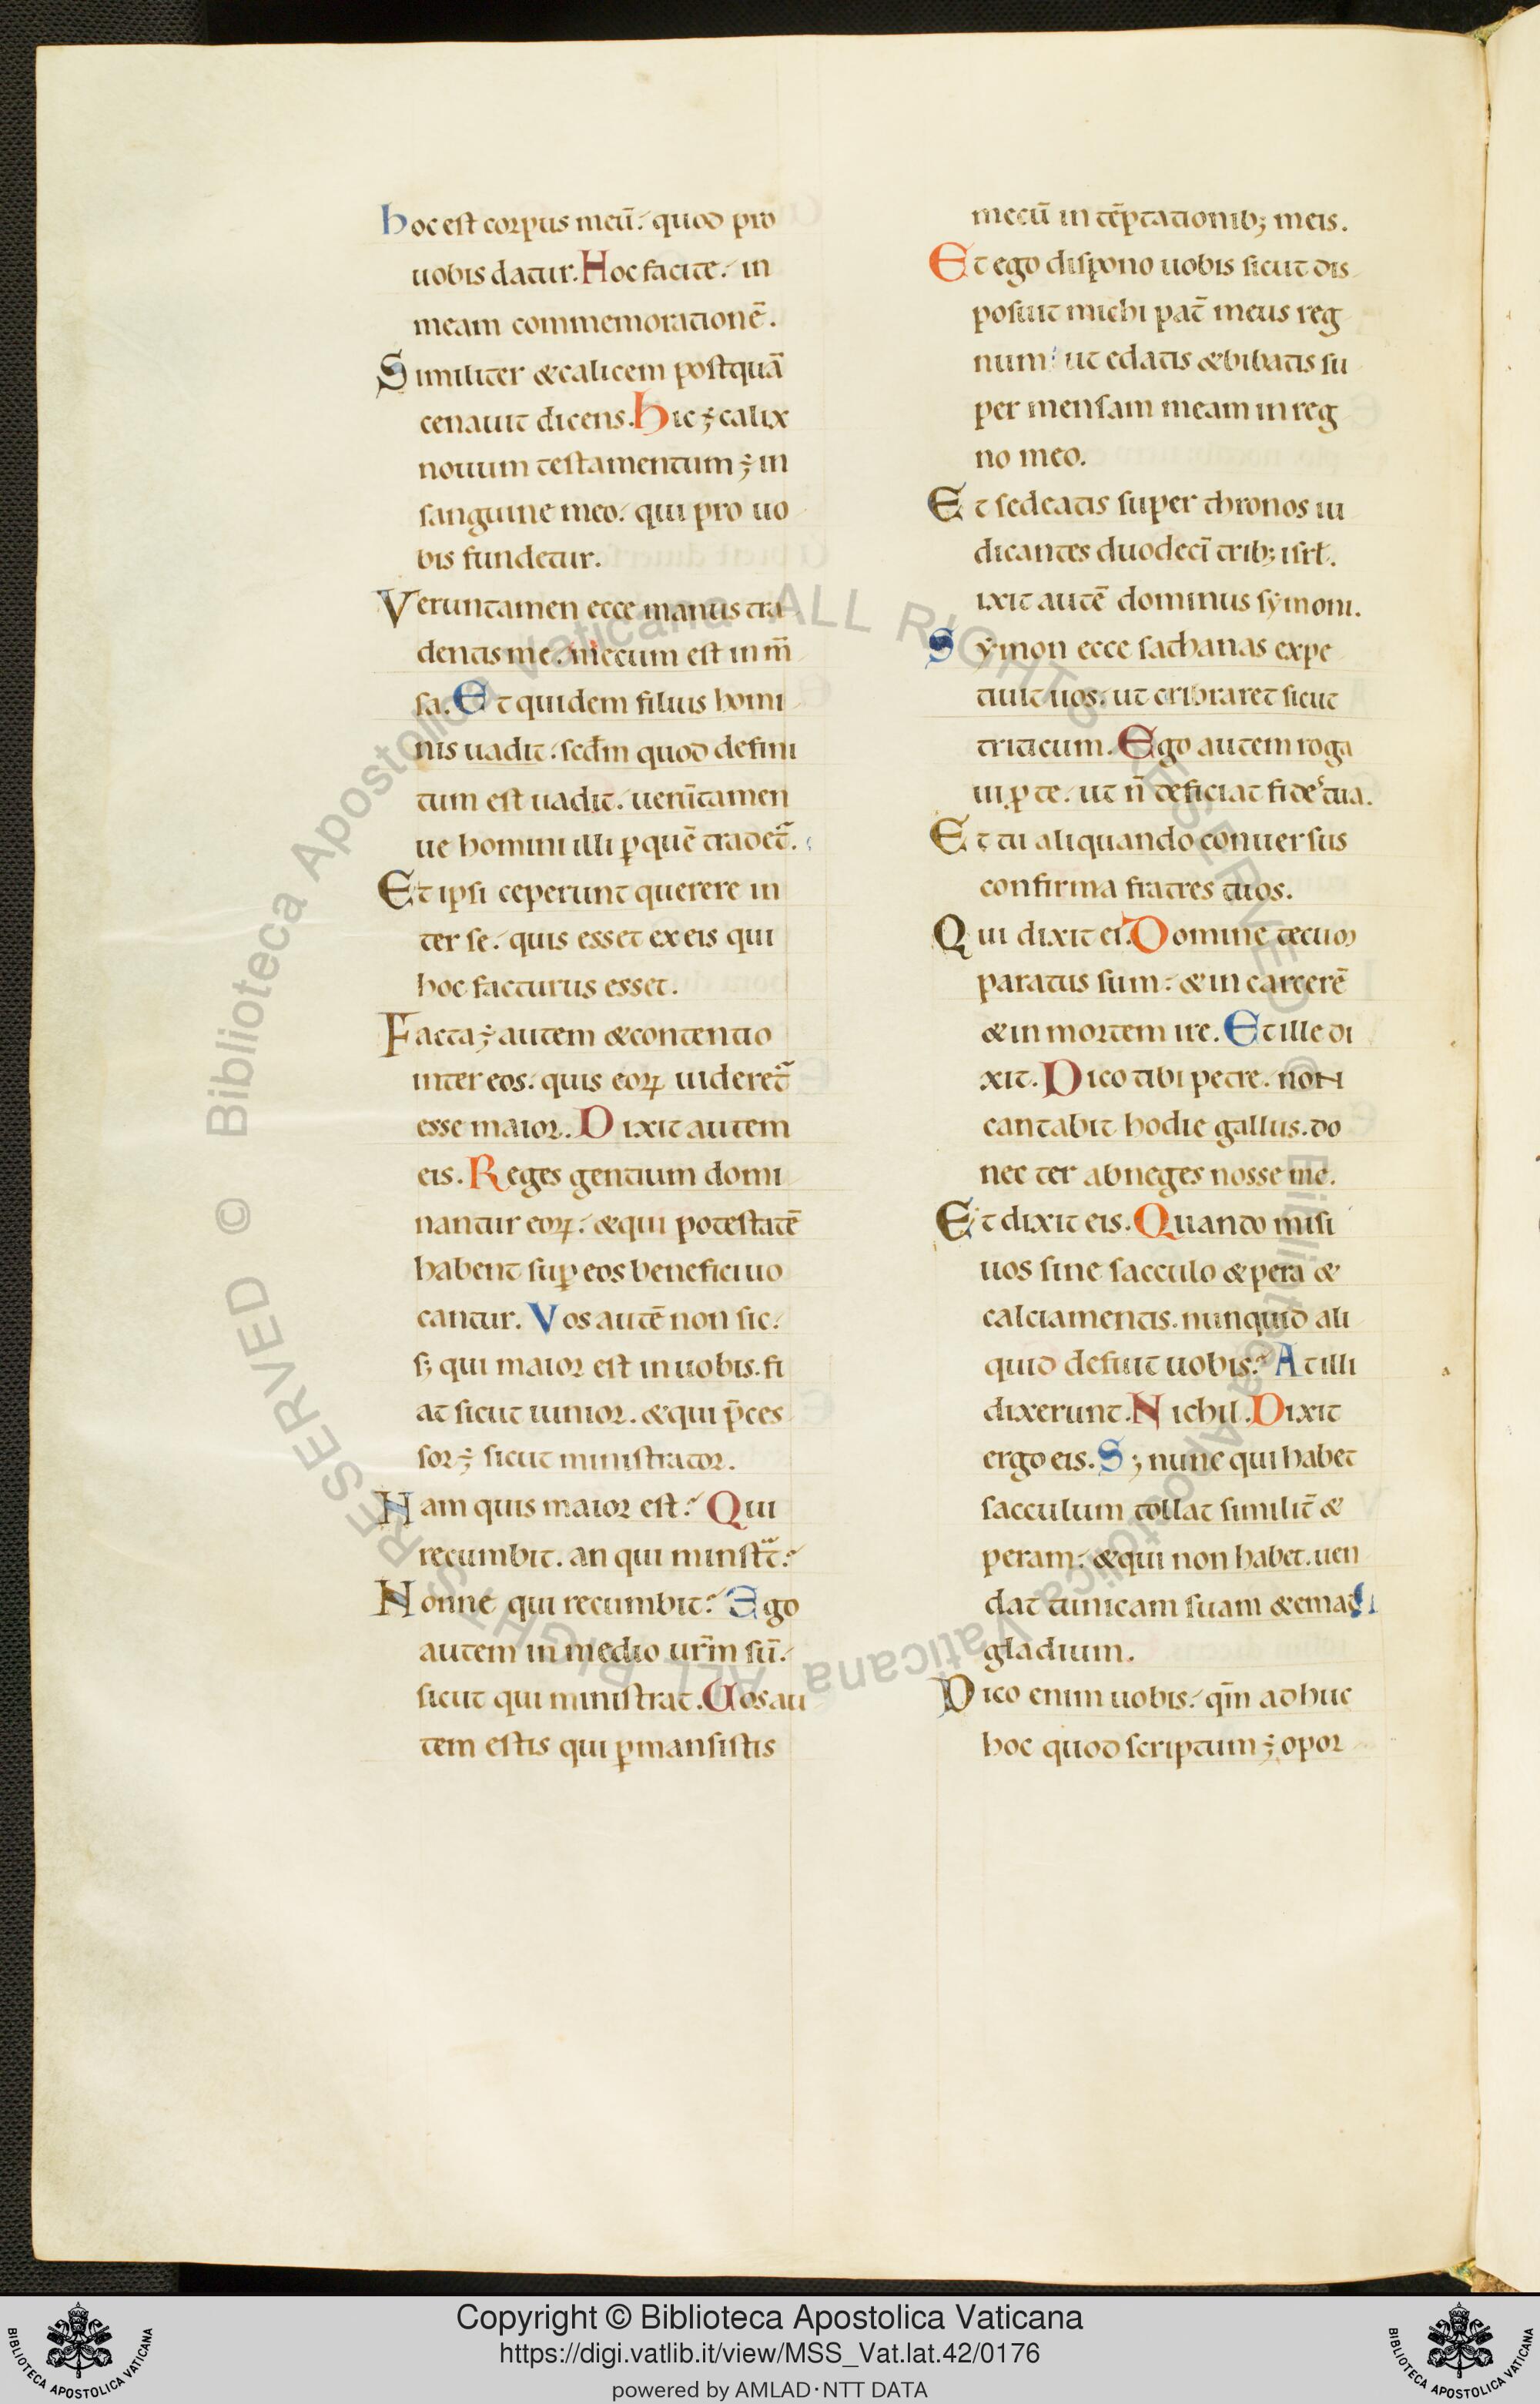 hoc est corpus meū. quod pro
uobis datur. Hoc facite. in
meam commemorationē.
Similiter & calicem postquā
cenauit dicens. hic ÷ calix
nouum testamentum ÷ in
sanguine meo. qui pro uo
bis fundetur.
Veruntamen ecce manus tra
dentis me. mecum est in m̄
sa. Et quidem filius homi
nis uadit. scd̄m quod defini
tum est uadit. uerūtamen
ue homini illi ꝑ quē tradet̃.
Et ipsi ceperunt querere in
ter se. quis esset ex eis qui
hoc facturus esset.
Facta ÷ autem & contentio
inter eos. quis eoꝝ uideret̃
esse maior. Dixit autem
eis. Reges gentium domi
nantur eoꝝ. & qui potestatē
habent suꝑ eos benefici uo
cantur. Vos autē non sic.
s; qui maior est in uobis. fi
at sicut iunior. & qui p̄ces
sor ÷ sicut ministrator.
Nam quis maior est? Qui
recumbit. an qui minist̃t?
Nonne qui recumbit? Ego
autem in medio ur̄m sū.
sicut qui ministrat. Uos au
tem estis qui ꝑmansistis
mecū in tēptationib; meis.
Et ego dispono uobis sicut dis
posuit michi pat̄ meus reg
num ut edatis & bibatis su
per mensam meam in reg
no meo.
Et sedeatis super thronos iu
dicantes duodecī trib; isrł.
ixit autē dominus symoni.
Symon ecce sathanas expe
tiuit uos. ut cribraret sicut
triticum. Ego autem roga
ui ꝓ te. ut n̄ deficiat fideˢ tua.
Et tu aliquando conuersus
confirma fratres tuos.
Qui dixit ei. Domine tecum
paratus sum. & in carcerē
& in mortem ire. Et ille di
xit. Dico tibi petre. non
cantabit hodie gallus. do
nec ter abneges nosse me.
Et dixit eis. Quando misi
uos sine sacculo & pera &
calciamentis. nunquid ali
quid defuit uobis? At illi
dixerunt. Nichil. Dixit
ergo eis. S; nunc qui habet
sacculum tollat similit̄ &
peram. & qui non habet. uen
dat tunicam suam & emat
gladium.
Dico enim uobis. qm̄ adhuc
hoc quod scriptum ÷ opor
© Biblioteca Apostolica Vaticana ALL RIGHTS RESERVED
© Biblioteca Apostolica Vaticana ALL RIGHTS RESERVED
Copyright © Biblioteca Apostolica Vaticana
https://digi.vatlib.it/view/MSS_Vat.lat.42/0176
powered by AMLAD·NTT DATA
BIBLIOTECA APOSTOLICA VATICANA
BIBLIOTECA APOSTOLICA VATICANA